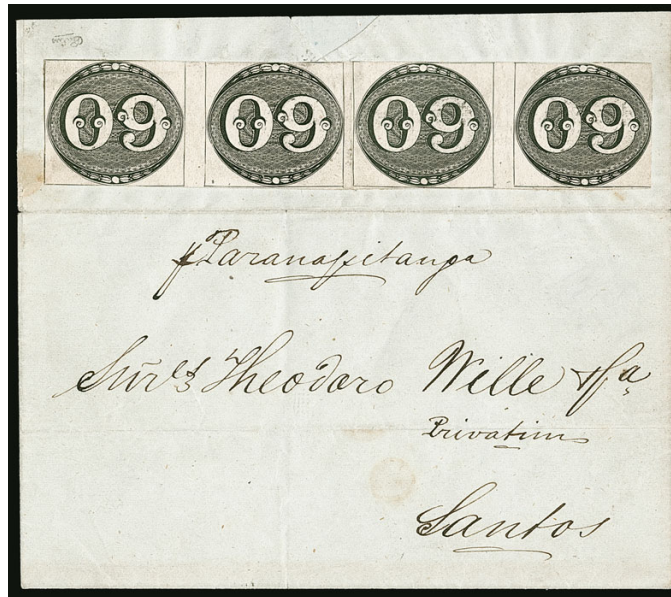 09 09 09 09
p Paranapitanga
Snr.es Theodoro Wille & Ca
Privatim
Santos